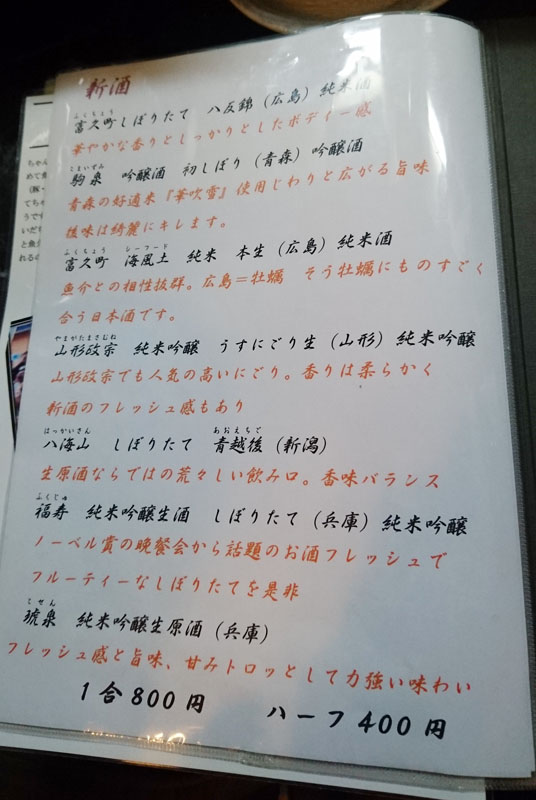 新酒
ふくちょう
富久町しぼりたて 八反錦（広島）純米酒
華やかな香りとしっかりとしたボディー感
こまいずみ
駒泉 吟醸酒 初しぼり（青森）吟醸酒
青森の好適米『華吹雪』使用じわりと広がる旨味
後味は綺麗にキレます。
ふくちょう シーフード
富久町 海風土 純米 本生（広島）純米酒
魚介との相性抜群。広島＝牡蠣 そう牡蠣にものすごく
合う日本酒です。
やまがたまさむね
山形政宗 純米吟醸 うすにごり生（山形）純米吟醸
山形政宗でも人気の高いにごり。香りは柔らかく
新酒のフレッシュ感もあり
はっかいさん あおえちご
八海山 しぼりたて 青越後（新潟）
生原酒ならではの荒々しい飲み口。香味バランス
ふくじゅ
福寿 純米吟醸生酒 しぼりたて（兵庫）純米吟醸
ノーベル賞の晩餐会から話題のお酒フレッシュで
フルーティーなしぼりたてを是非
こせん
琥泉 純米吟醸生原酒（兵庫）
フレッシュ感と旨味、甘みトロッとして力強い味わい
1合800円 ハーフ400円